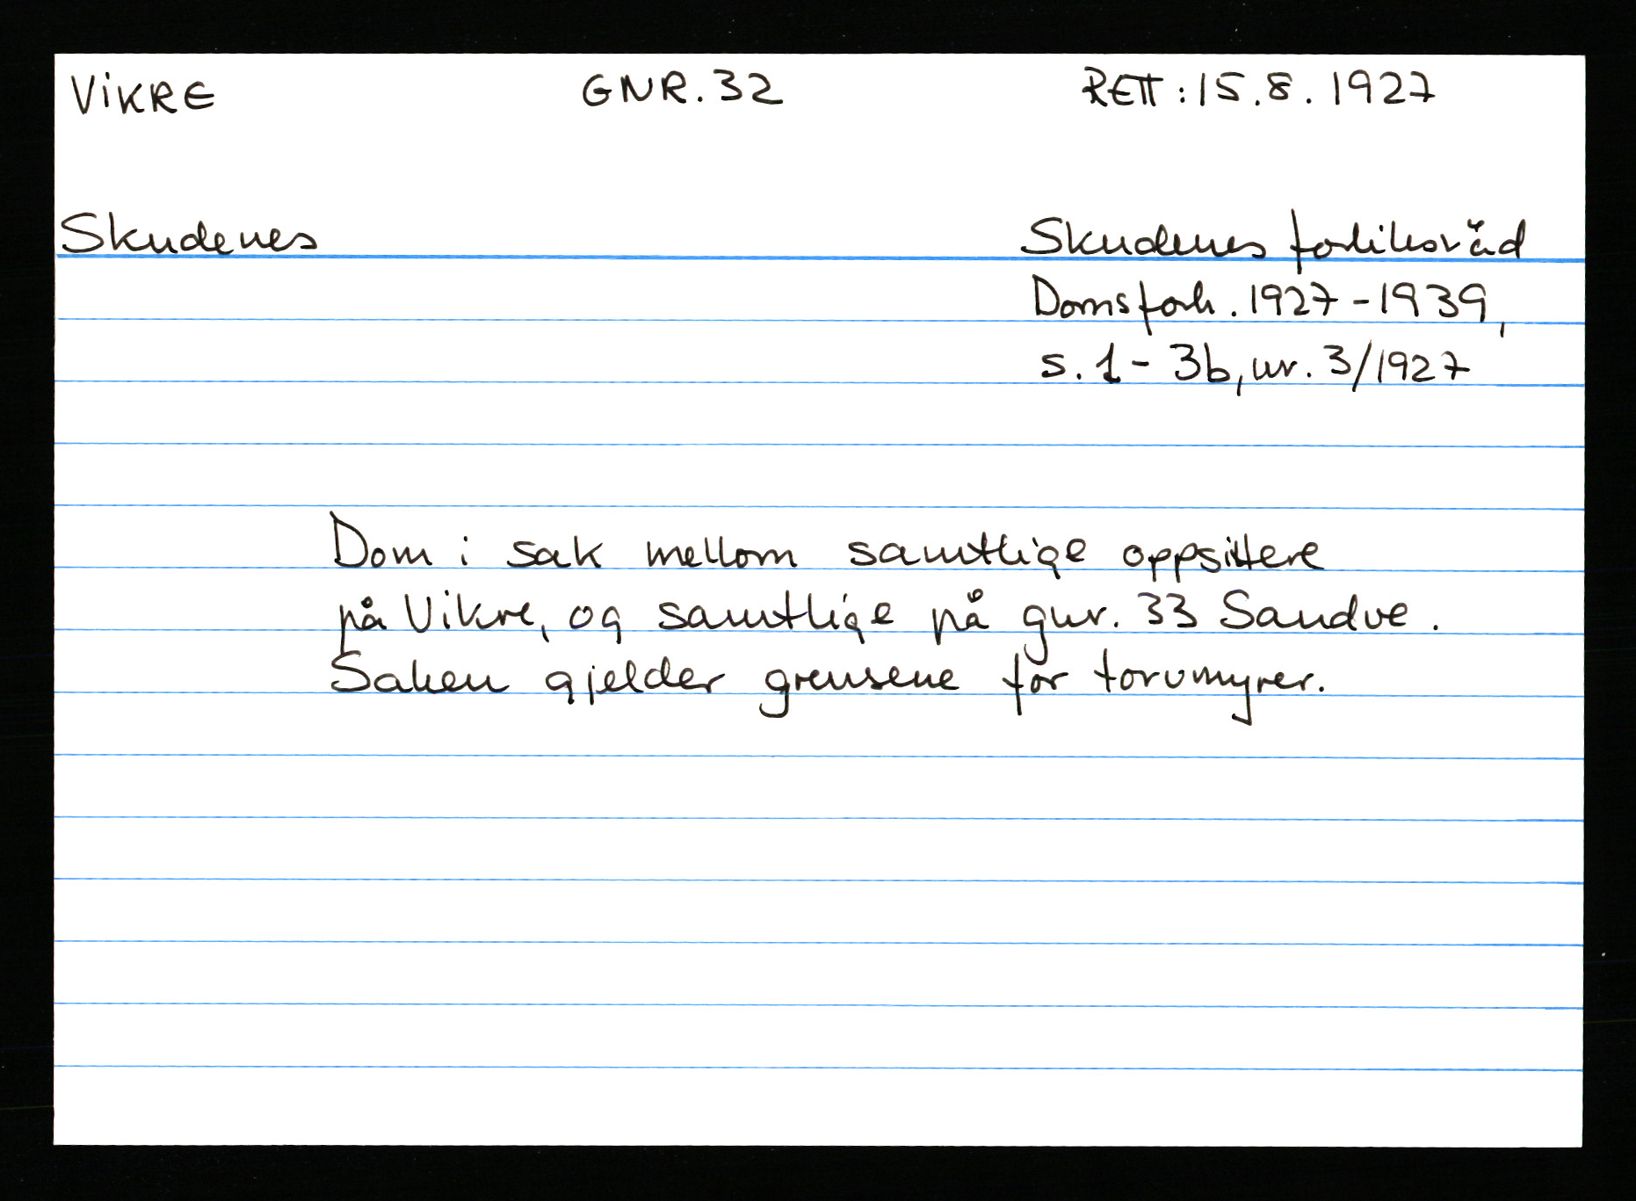 VIKRE GNR. 32 RETT: 15.8. 1927
Skudenes Skudenes forliksråd
Domsforh. 1927-1939,
s. 1 - 3b, nr. 3/1927
Dom i sak mellom samtlige oppsittere
på Vikre, og samtlige på gnr. 33 Sandve.
Saken gjelder grensene for torvmyrer.